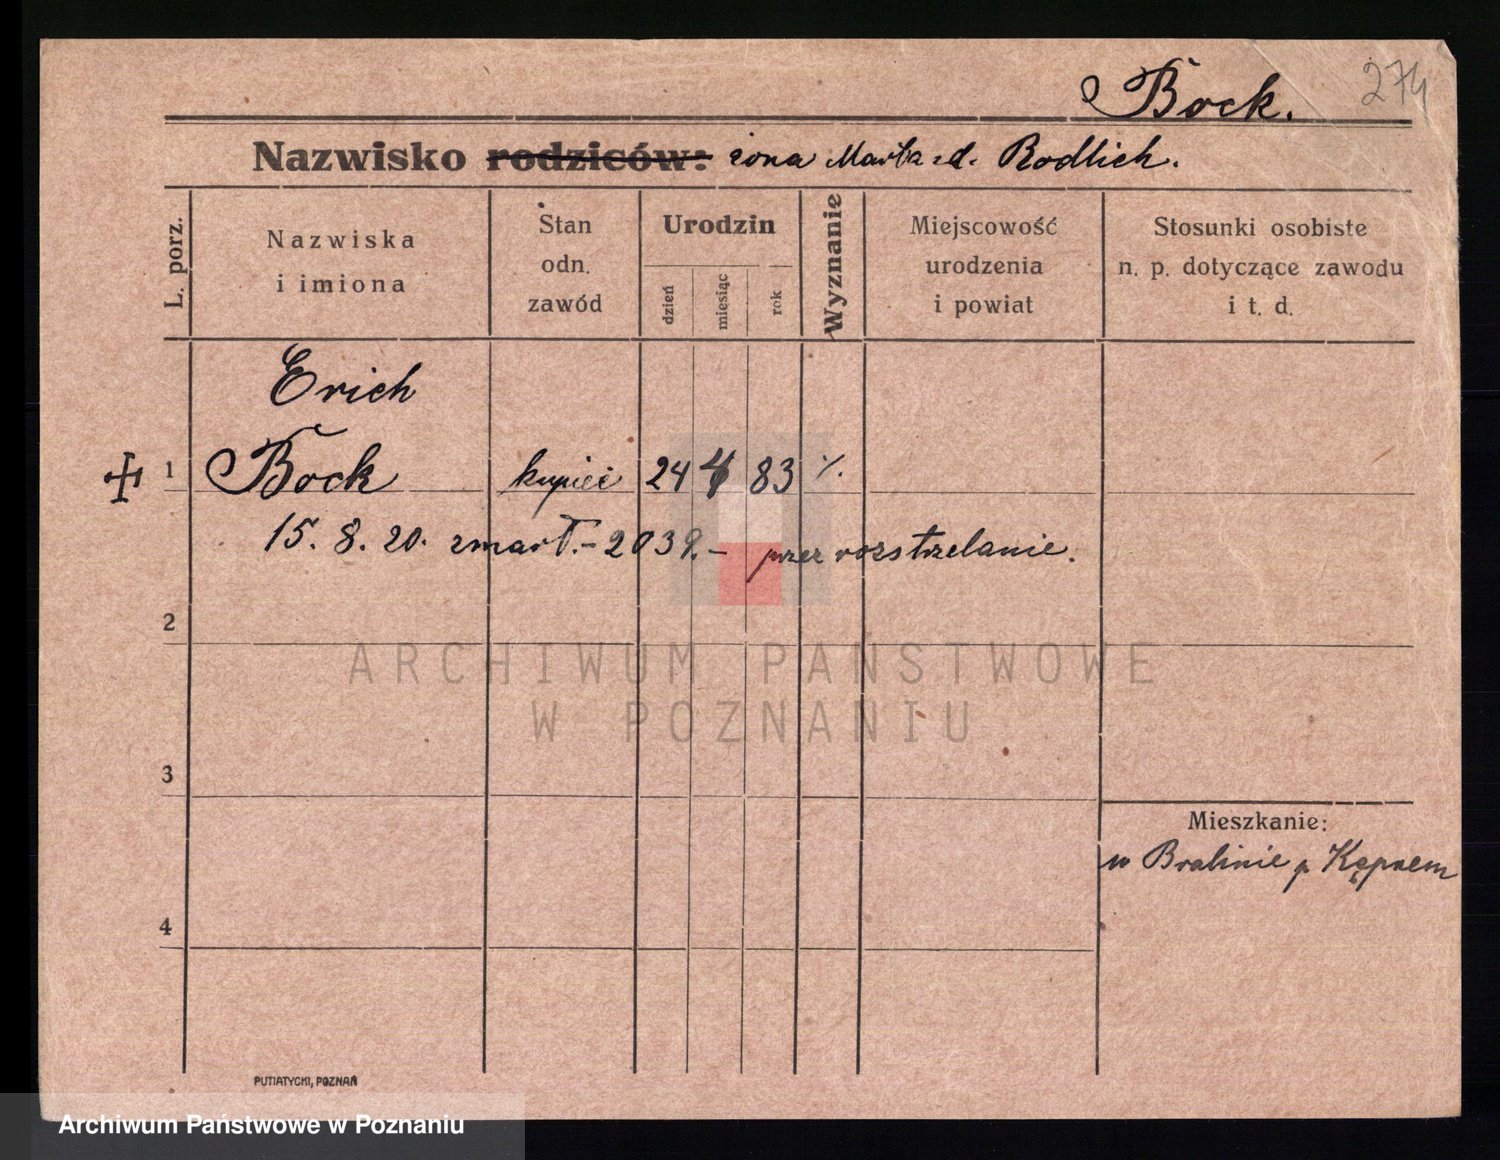 Bock. 274
Nazwisko rodziców: żona Marta zd. Rodlich.
L. porz.
Nazwiska
i imiona
Stan
odn.
zawód
Urodzin
dzień
miesiąc
rok
Wyznanie
Miejscowość
urodzenia
i powiat
Stosunki osobiste
n. p. dotyczące zawodu
i t. d.
Erich
1 Bock kupiec 24 4 83 %.
15. 8. 20. zmarł. - 2039. - przez rozstrzelanie.
2
3
4
Mieszkanie:
w Bralinie p Kępnem
PUTIATYCKI, POZNAŃ
ARCHIWUM PAŃSTWOWE
W POZNANIU
Archiwum Państwowe w Poznaniu